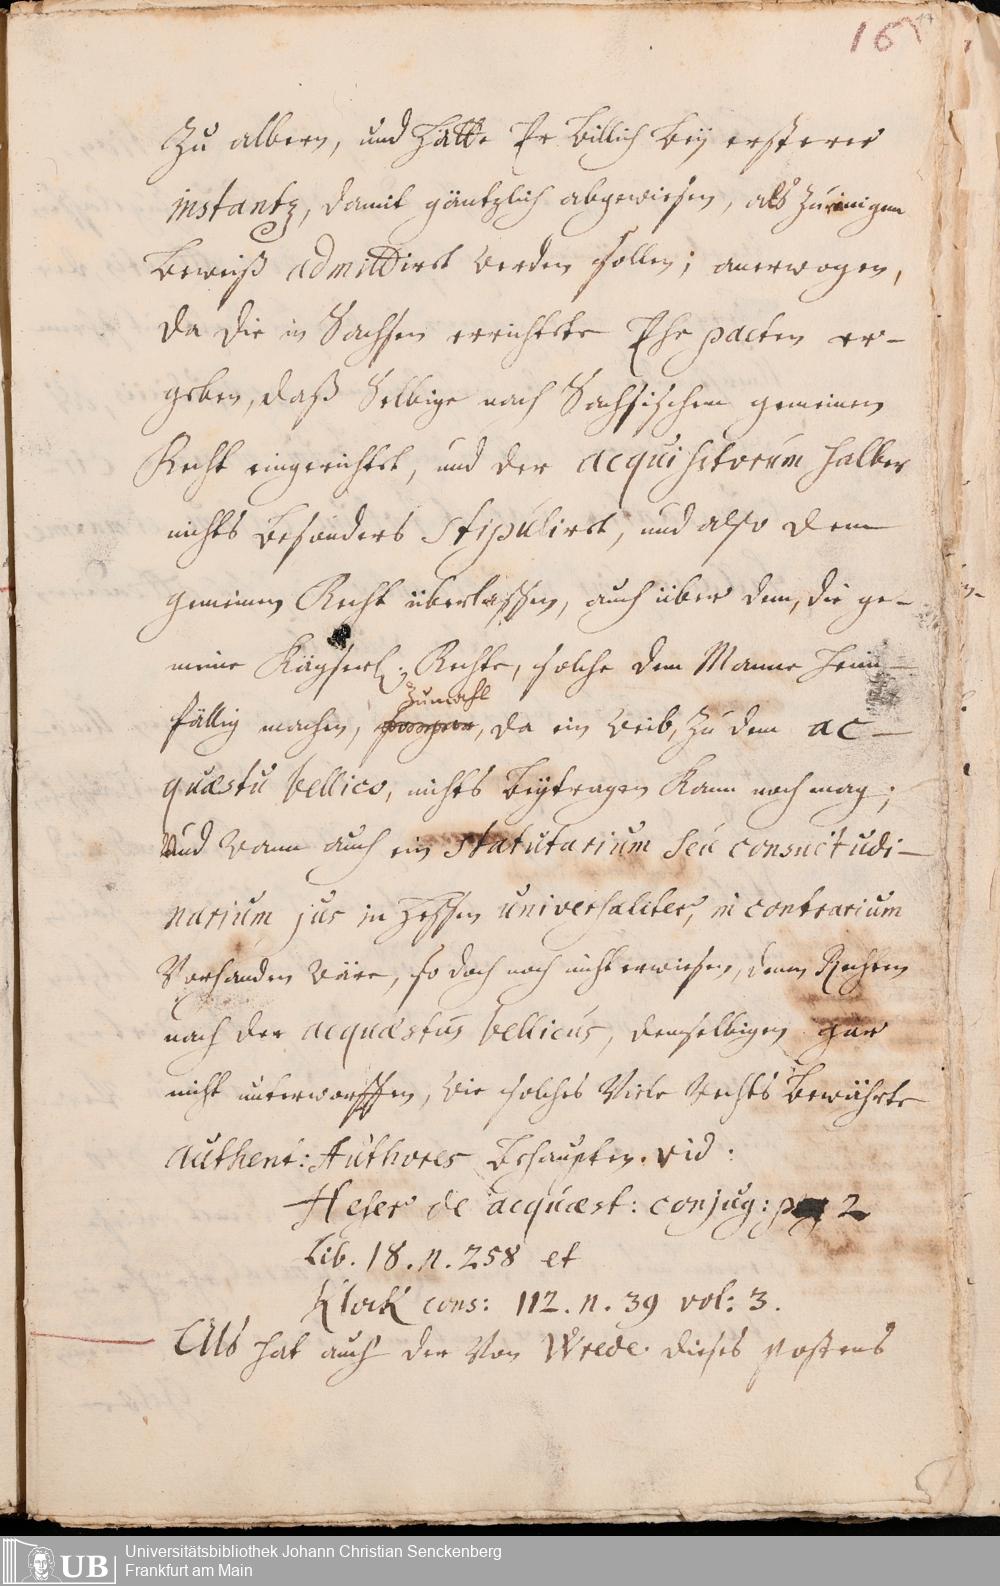 16
17
Zu albern, und hätte Er billich beÿ ersterer
instantz, damit gäntzlich abgewiesen, als zu einigem
beweiß admittiret werden sollen; anerwogen,
da die in Sachsen errichtete Ehe pacten er-
geben, daß Selbige nach Sächsischem gemeinen
Recht eingerichtet, und der acquisitorum halber
nichts besonders stipuliret, und also dem
gemeinen Recht überlassen, auch über dem, die ge-
meine Käyserl. Rechte, solche dem Manne heim-
zumahl
fällig machen, da ein Weib, zu dem ac-
quæstu bellico, nichts beÿtragen kann noch mag;
Und wann auch ein statutarium seu consuetudi-
narium jus in Hessen universaliter, in contrarium
vorhanden wäre, so doch noch nicht erwiesen, denen Rechten
nach der acquæstus bellicus, demselbigen gar
nicht unterworffen, wie solches viele Rechts bewährte
authent: Authores behaupten. vid:
Heser de acquæst: conjug: 2
Lib. 18. n. 258 et
Klock cons: 112. n. 39 vol: 3.
Als hat auch der von Wrede dieses postens
UB
Universitätsbibliothek Johann Christian Senckenberg
Frankfurt am Main